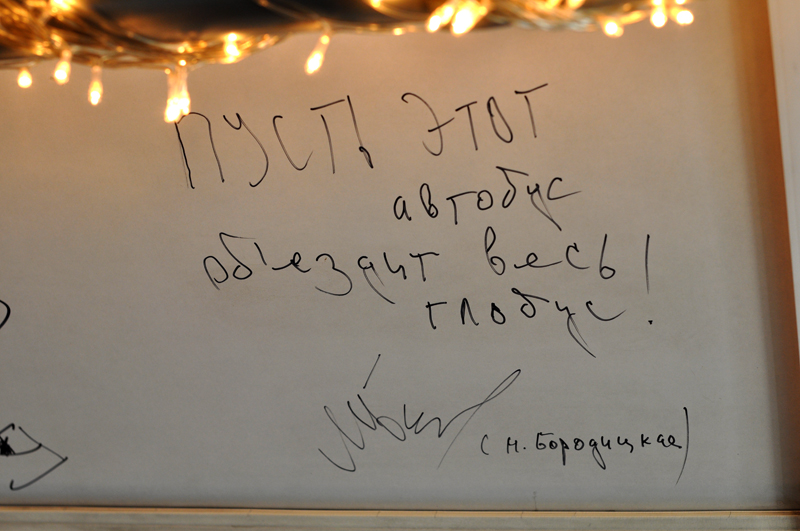 ПУСТЬ ЭТОТ
автобус
об'ездит весь
глобус!
(М. Бородицкая)